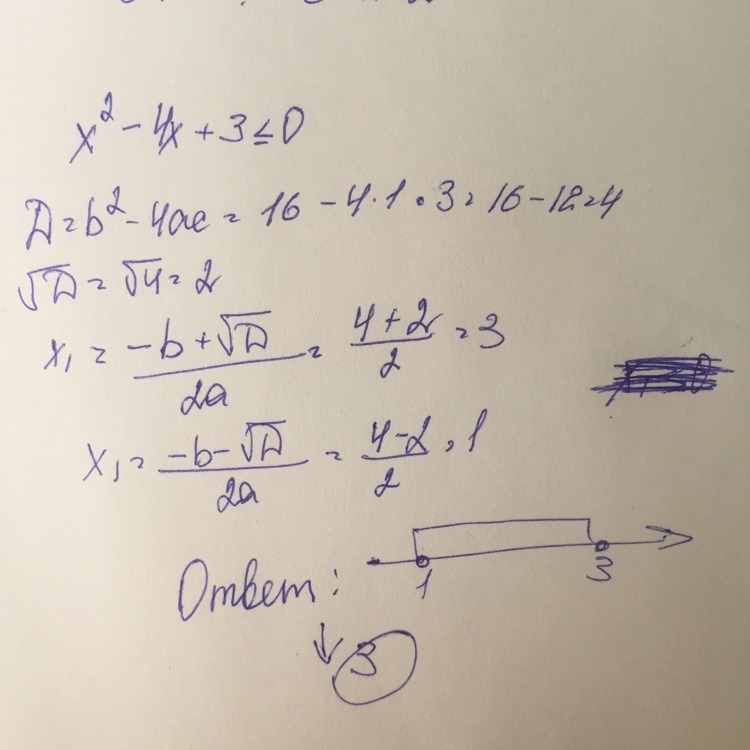 x² - 4x + 3 ≤ 0
D = b² - 4ac = 16 - 4·1·3 = 16 - 12 = 4
√D = √4 = 2
x₁ = (-b + √D)/2a = (4 + 2)/2 = 3
x₁ = (-b - √D)/2a = (4 - 2)/2 = 1
Ответ: 1 3
↓ 3